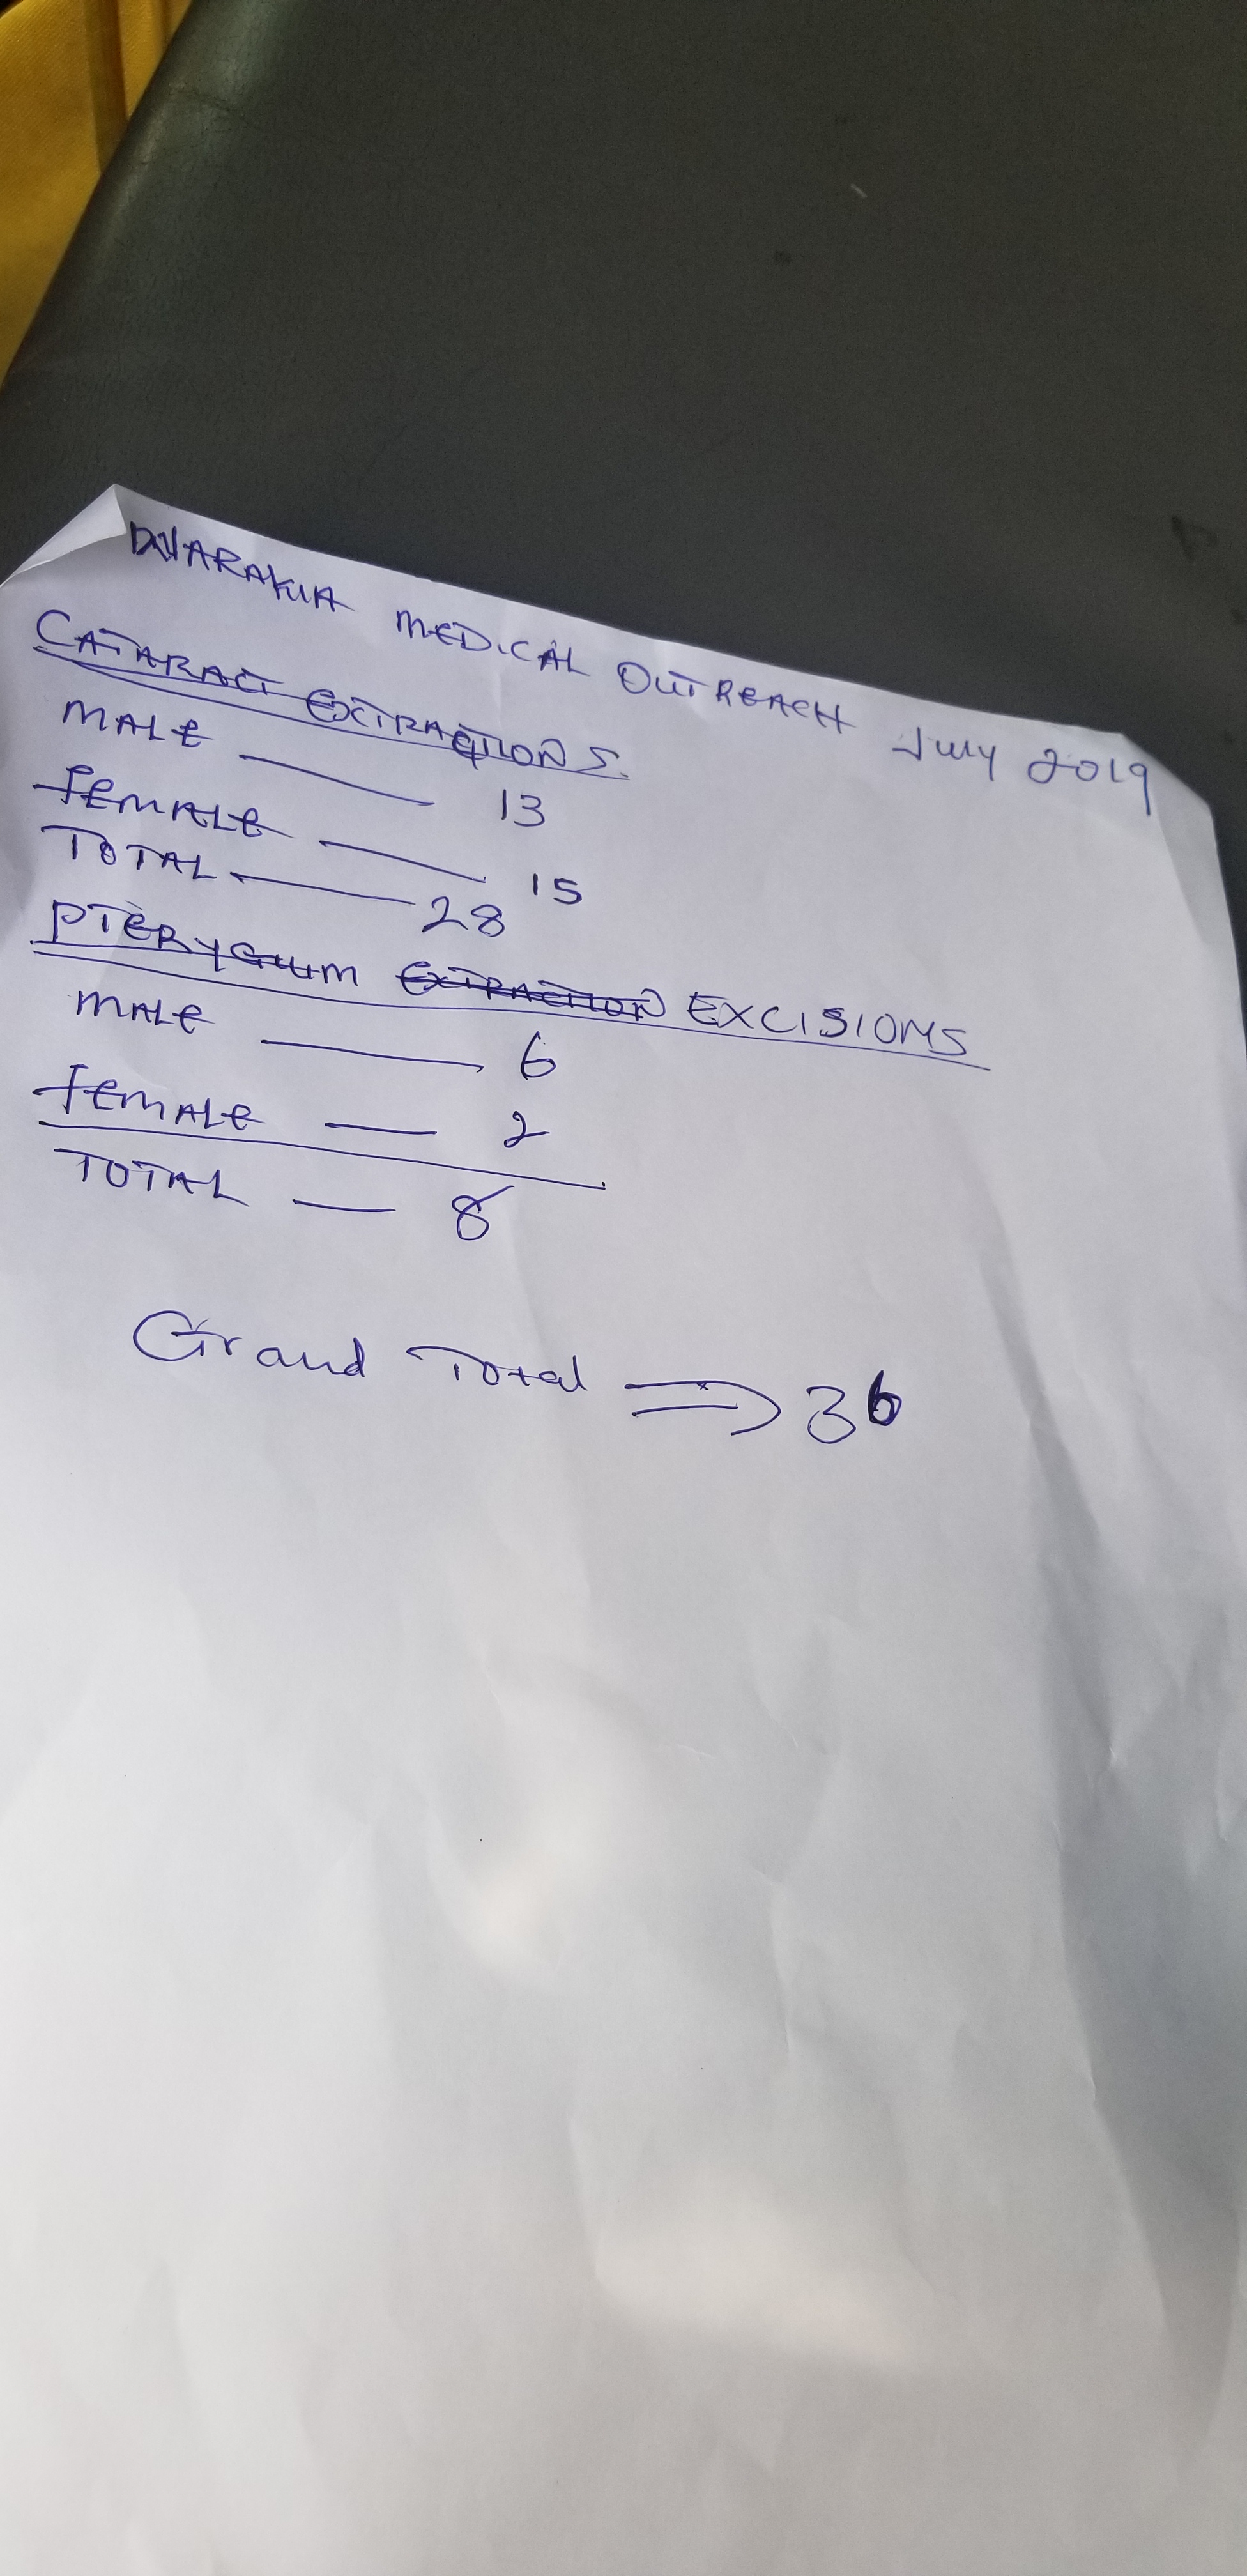 MEDICAL OUTREACH July 2019
CATARACT EXTRACTIONS.
MALE — 13
FEMALE — 15
TOTAL — 28
PTERYGIUM EXTRACTION EXCISIONS
MALE — 6
FEMALE — 2
TOTAL — 8
Grand Total ⇒ 36